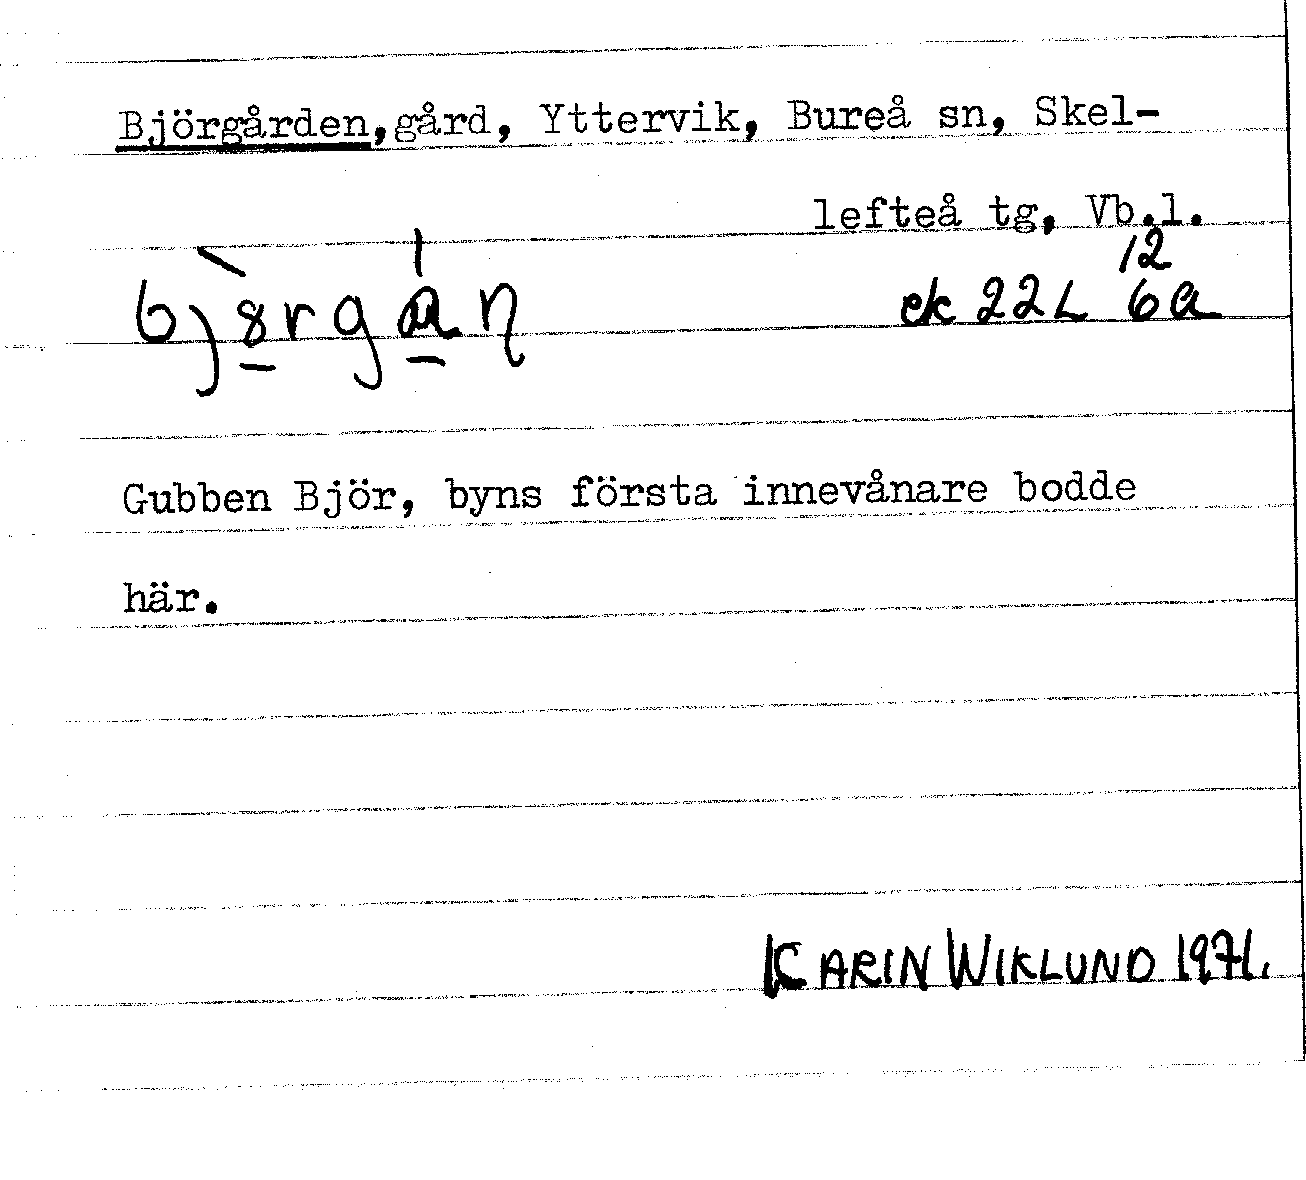 Björgården,gård, Yttervik, Bureå sn, Skel-
lefteå tg, Vb.l.
12
ek 22L 6a
Gubben Björ, byns första innevånare bodde
här.
KARIN WIKLUND 1971.